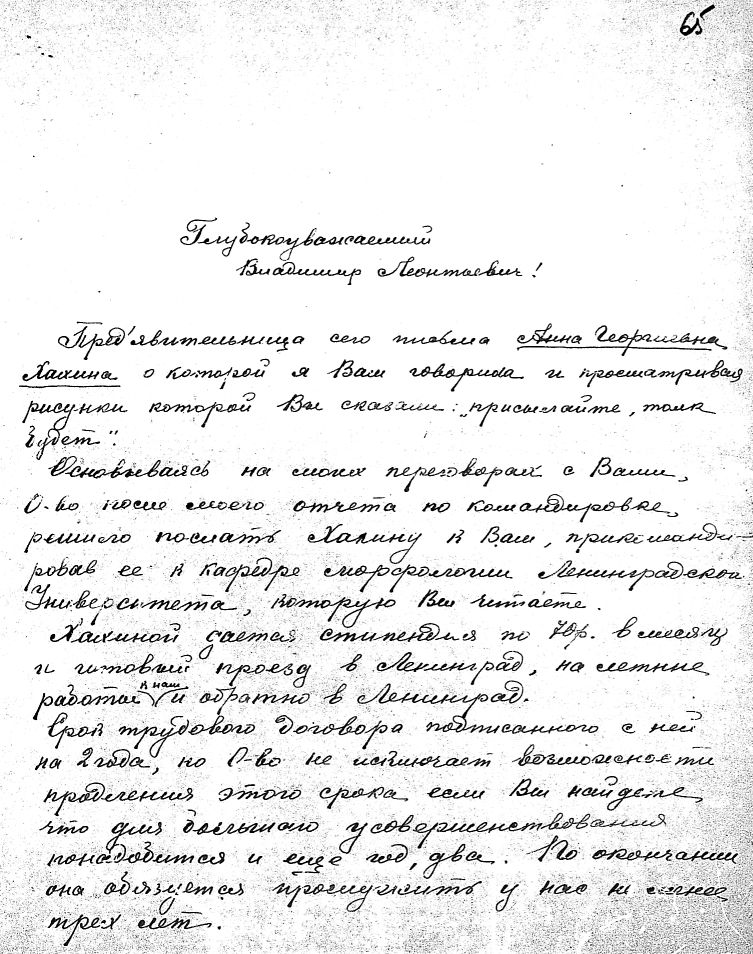 65
Глубокоуважаемый
Владимир Леонтьевич!
Пред'явительница сего письма Анна Георгиевна
Хахина о которой я Вам говорила и просматривая
рисунки которой Вы сказали: „присылайте, толк
будет".
Основываясь на моих переговорах с Вами,
О-во после моего отчета по командировке,
решило послать Хахину к Вам, прикоманди-
ровав ее к кафедре морфологии Ленинградского
Университета, которую Вы читаете.
Хахиной дается стипендия по 70р. в месяц
и готовый проезд в Ленинград, на летние
работы к нам и обратно в Ленинград.
Срок трудового договора подписанного с ней
на 2 года, но О-во не исключает возможности
продления этого срока если Вы найдете,
что для большаго усовершенствования
понадобится и еще год, два. По окончании
она обязуется прослужить у нас не менее
трех лет.